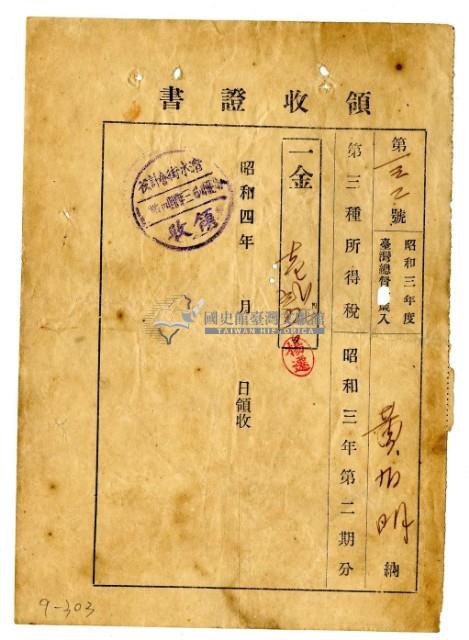 領收證書
第一三二號
昭和三年度
臺灣總督府歲入
黃 明 納
第三種所得稅昭和三年第二期分
一金
昭和四年 月 日領收
清水街會計役
領收
楊選
國史館臺灣文獻館
TAIWAN HISTORICA
9-303